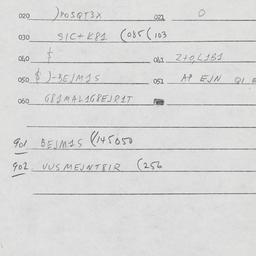 020 )POSQT3X 021 0
030 SIC+K81 (085(103
040 $ 041 Z+0,L1B1
050 $)-BEJM1S 051 AP EJN QI
060 G81MAL1G8EJR1T
901 BEJM1S (/145050
902 VUSMEJNT8IR (256